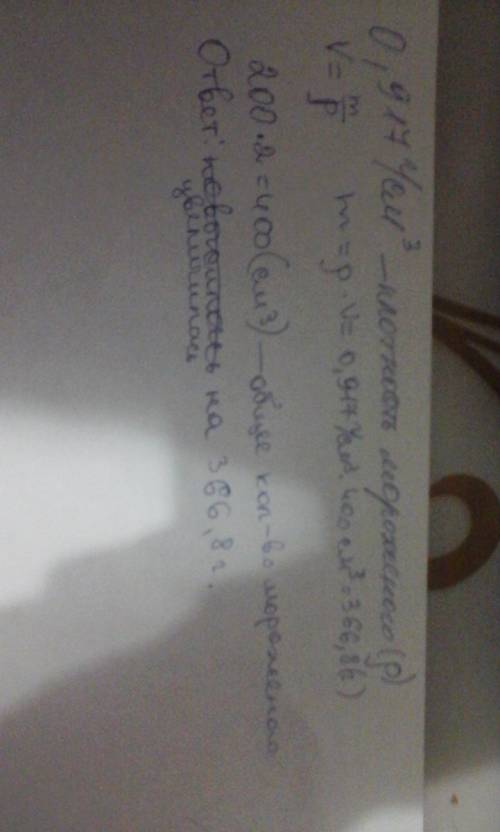 0,917 г/см³ – плотность мороженого (р)
V = m/р m = р · V = 0,917 г/см³ · 400 см³ = 366,8 (г)
200 · 2 = 400 (см³) – общее кол-во мороженого
Ответ: увеличилась на 366,8 г.